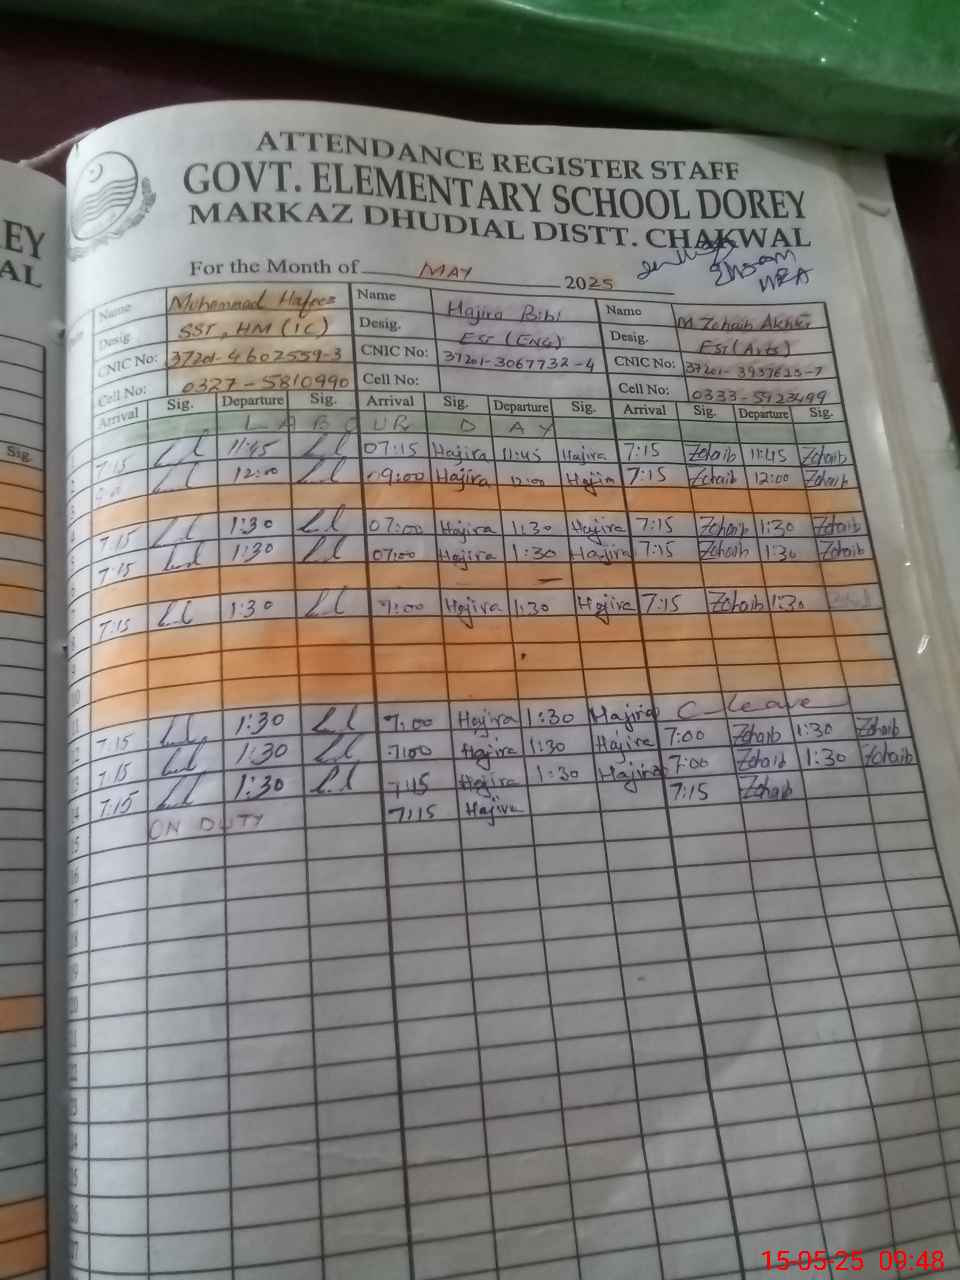 EY
AL
Sig.
ATTENDANCE REGISTER STAFF
GOVT. ELEMENTARY SCHOOL DOREY
MARKAZ DHUDIAL DISTT. CHAKWAL
For the Month of MAY 2025
Name Muhammad Hafeez Name Hajira Bibi Name M Zohaib Akhter
Desig SST, HM (IC) Desig. EST (ENG) Desig. EST (Arts)
CNIC No: 37201-4602559-3 CNIC No: 37201-3067732-4 CNIC No: 37201-3937625-7
Cell No: 0327-5810990 Cell No: Cell No: 0333-5923499
Arrival Sig. Departure Sig. Arrival Sig. Departure Sig. Arrival Sig. Departure Sig.
LABOUR DAY
7:15 11:45 07:15 Hajira 11:45 Hajira 7:15 Zohaib 11:45 Zohaib
12:00 09:00 Hajira 12:00 Hajira 7:15 Zohaib 12:00 Zohaib
7:15 1:30 07:00 Hajira 1:30 Hajira 7:15 Zohaib 1:30 Zohaib
7:15 1:30 07:00 Hajira 1:30 Hajira 7:15 Zohaib 1:30 Zohaib
7:15 1:30 7:00 Hajira 1:30 Hajira 7:15 Zohaib 1:30
7:15 1:30 7:00 Hajira 1:30 Hajira C leave
7:15 1:30 7:00 Hajira 1:30 Hajira 7:00 Zohaib 1:30 Zohaib
7:15 1:30 7:15 Hajira 1:30 Hajira 7:00 Zohaib 1:30 Zohaib
ON DUTY 7:15 Hajira 7:15 Zohaib
15-05-25 09:48